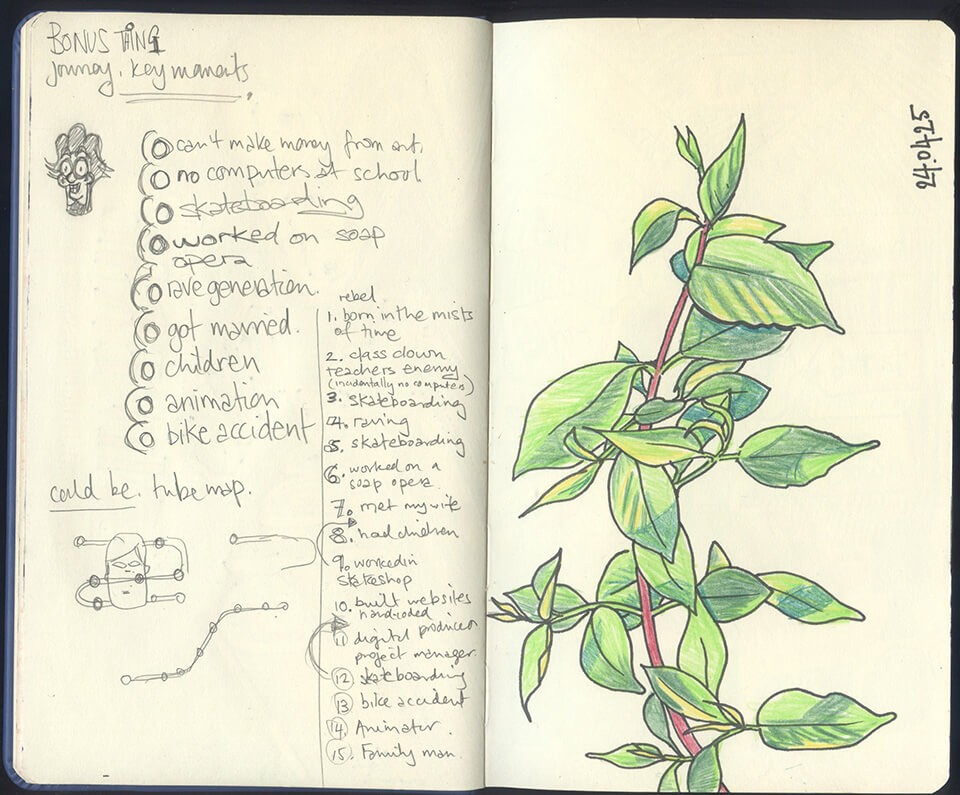 BONUS THING
journey. key moments
can't make money from art.
no computers at school
skateboarding
worked on soap
opera
rave generation.
got married.
children
animation
bike accident
could be. tube map.
rebel
1. born in the mists
of time
2. class clown
teachers enemy
(incidentally no computers)
3. skateboarding
4. raving
5. skateboarding
6. worked on a
soap opera
7. met my wife
8. had children
9. worked in
skateshop
10. built websites
hand-coded
11 digital producer
project manager
12 skateboarding
13 bike accident
14. Animator.
15. Family man
24.04.25